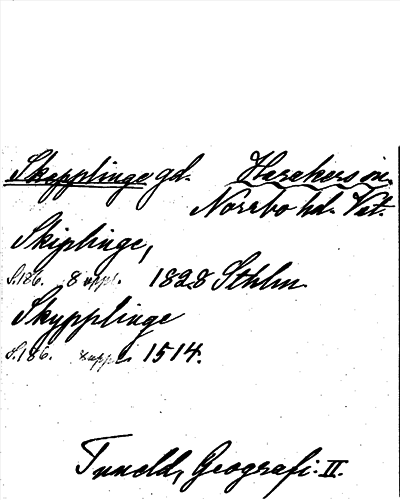 Skepplinge gd. Harakers sn.
Norrbo hd. Vst.
Skiplinge,
S. 186. 8 uppl. 1828 Sthlm
Skypplinge
S. 186. 8 uppl. 1514.
Tuneld, Geografi. II.